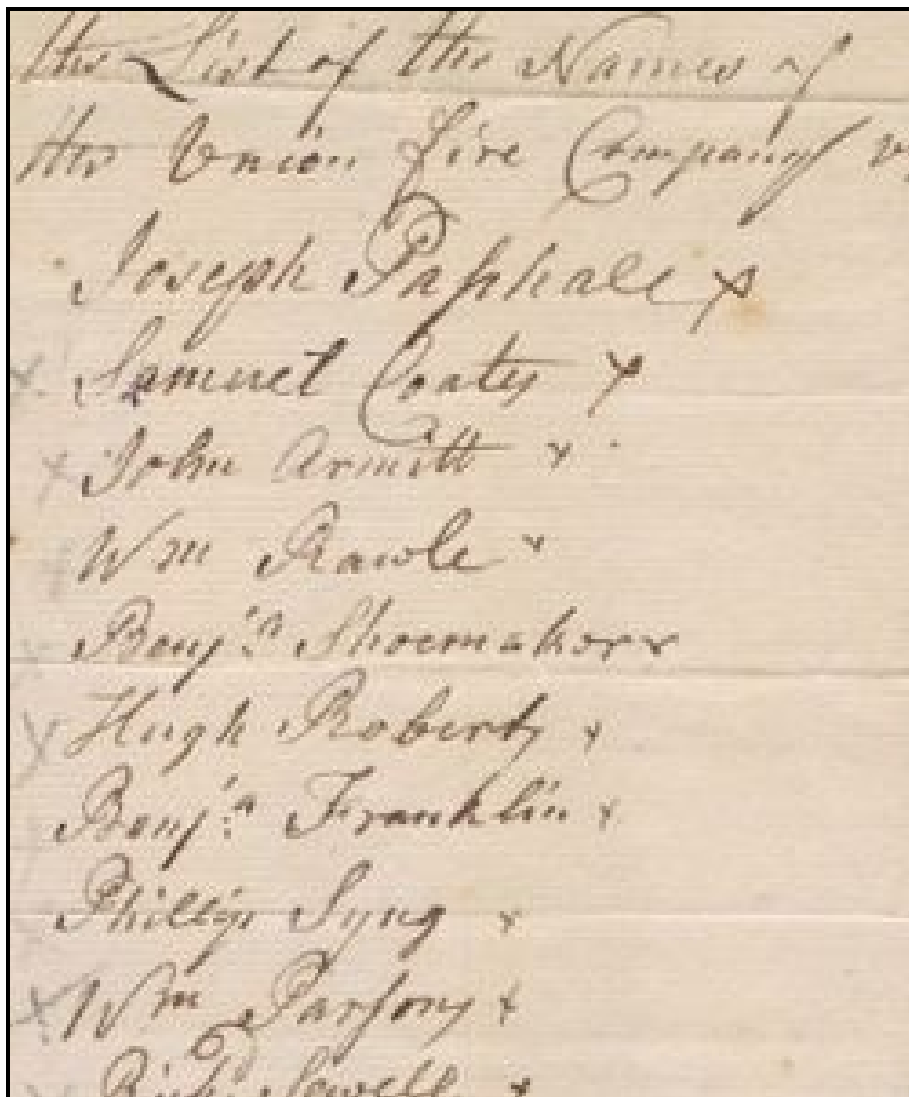 the List of the Names of
the Union Fire Company
Joseph Paſhall x
Samuel Coates x
x John Armitt x
Wm Rawle x
Benj.ª Shoemaker x
x Hugh Roberts x
Benj.ª Franklin x
Phillip Syng x
x Wm Parſons x
Rich.ᵈ Sewell x